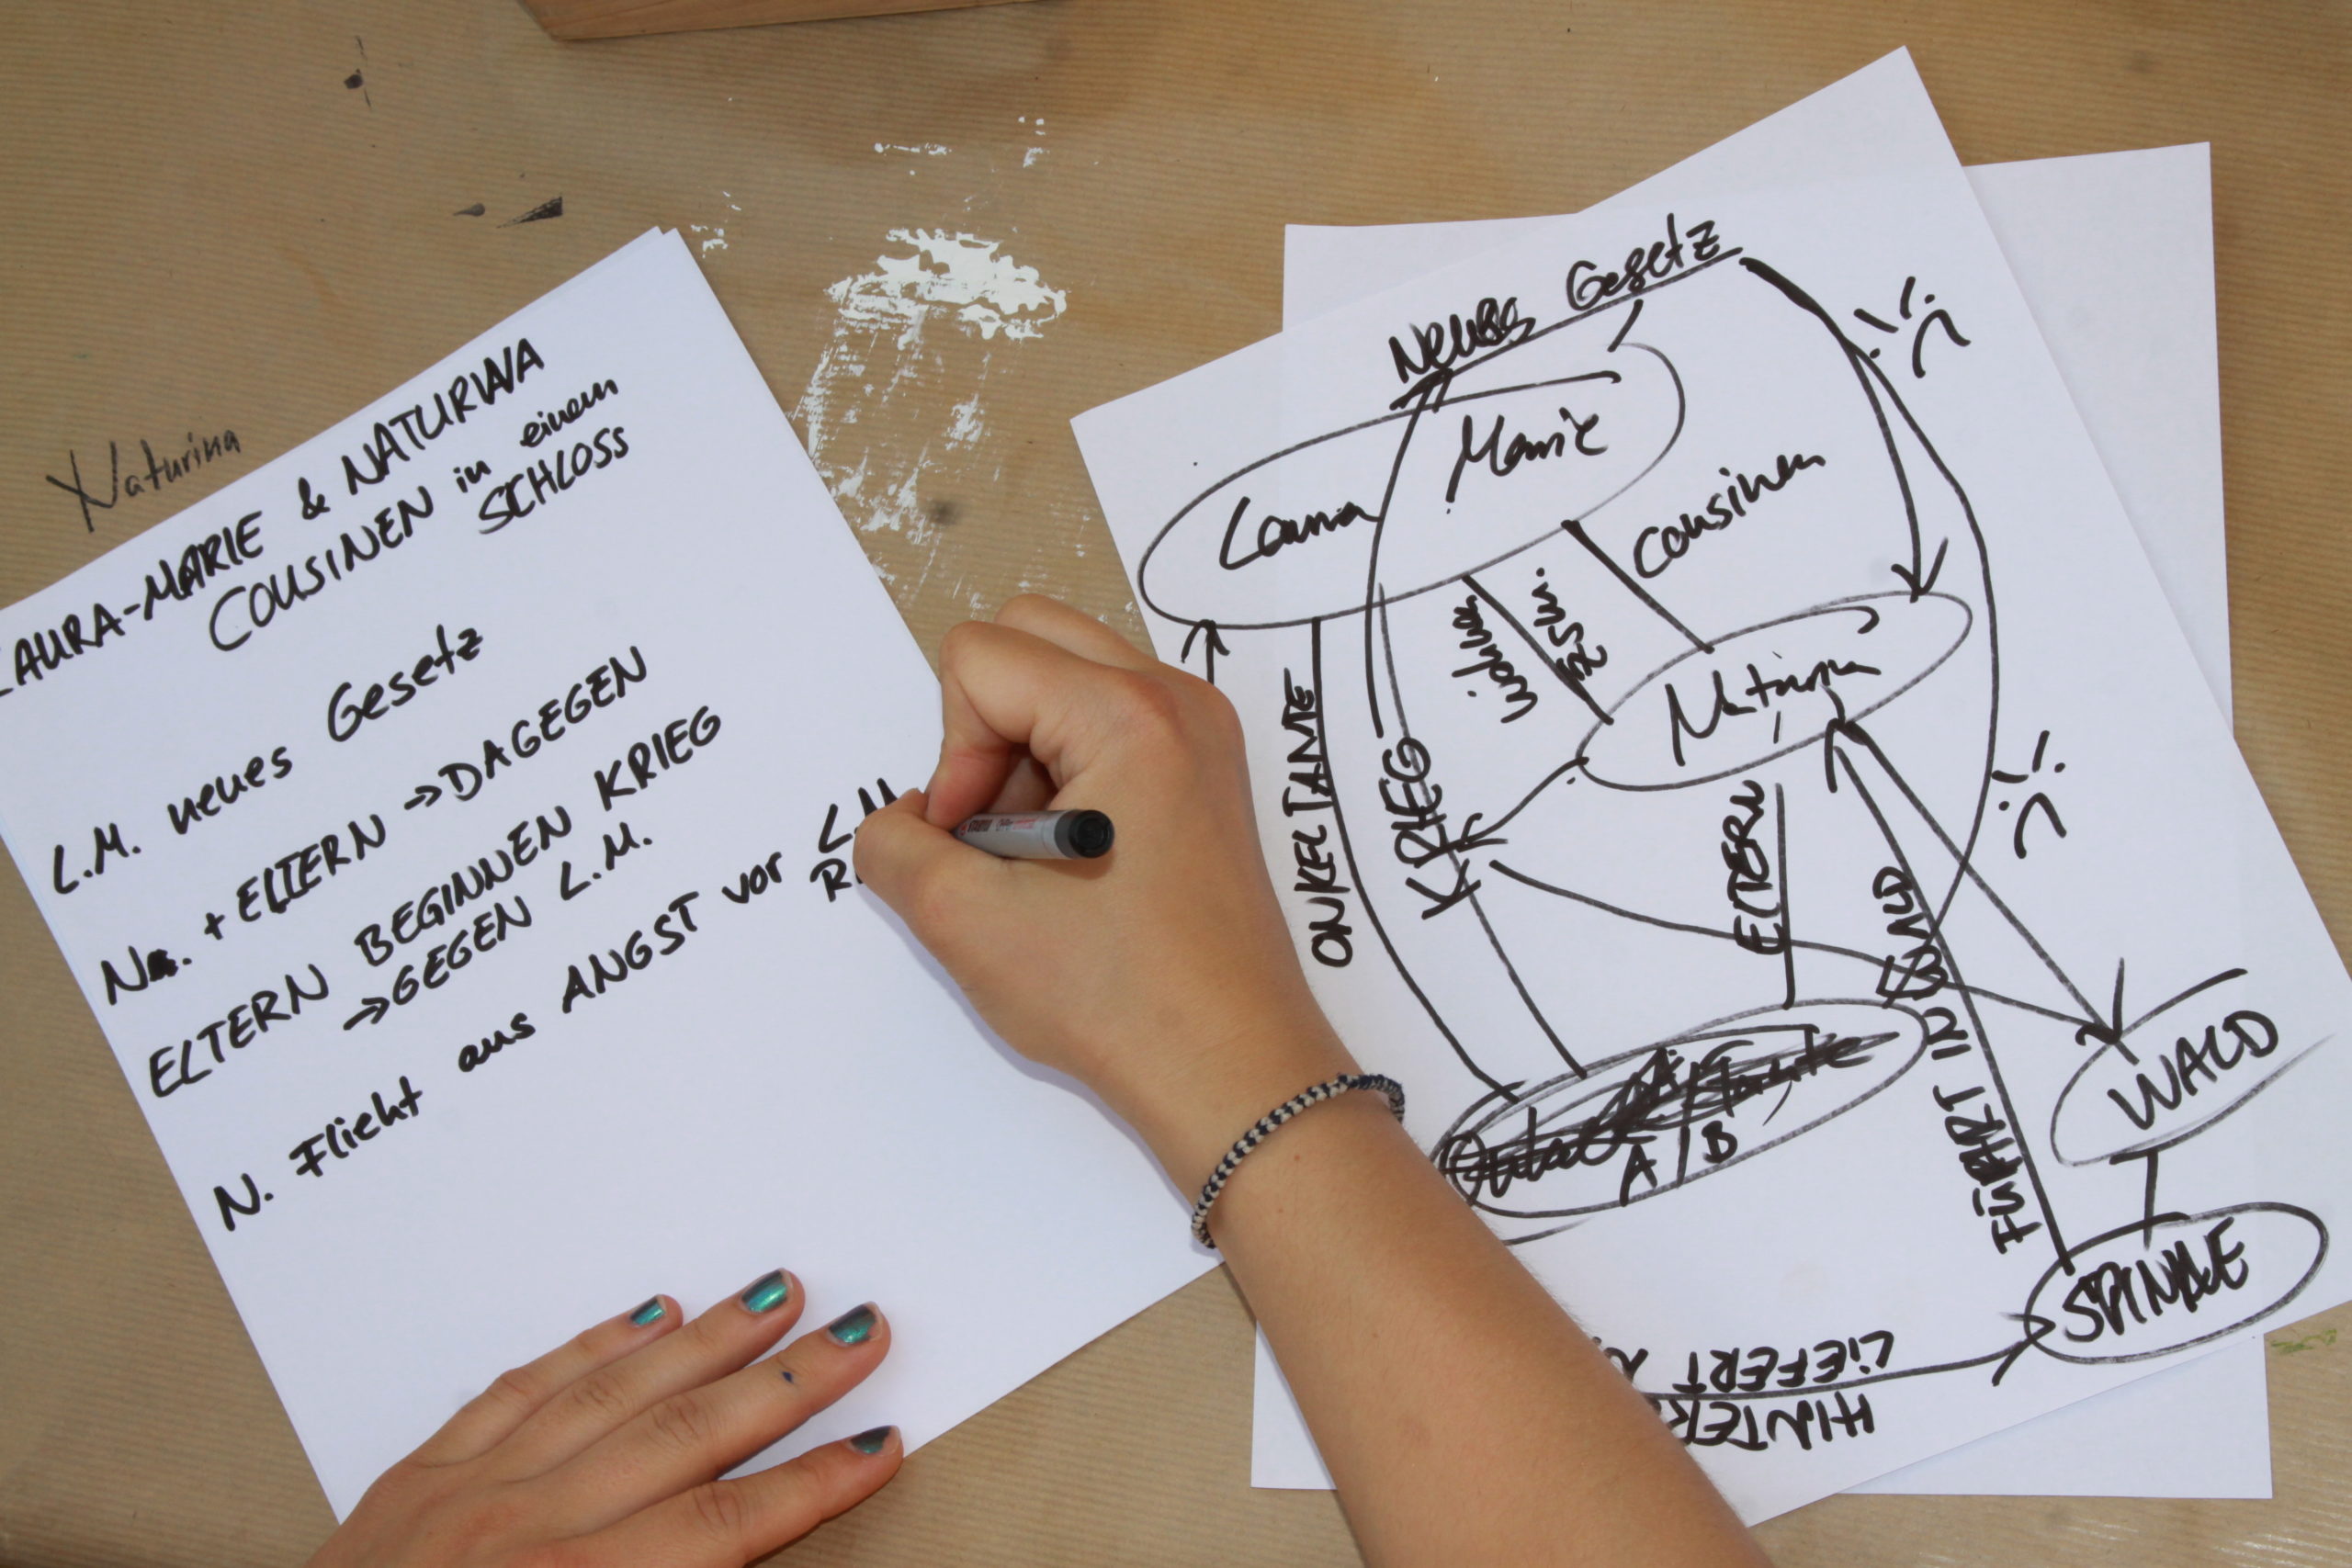 Naturina
LAURA-MARIE & NATURINA
COUSINEN in einem
SCHLOSS
L.M. neues Gesetz
N. + ELTERN → DAGEGEN
ELTERN BEGINNEN KRIEG
→ GEGEN L.M.
N. Flieht aus ANGST vor L.M.
Neues Gesetz
Laura Marie
Cousinen
wohnen zsm.
Naturina
ONKEL TANTE
KRIEG
ELTERN
A/B
FÜHRT IN WALD
WALD
SPINNE
LIEFERT